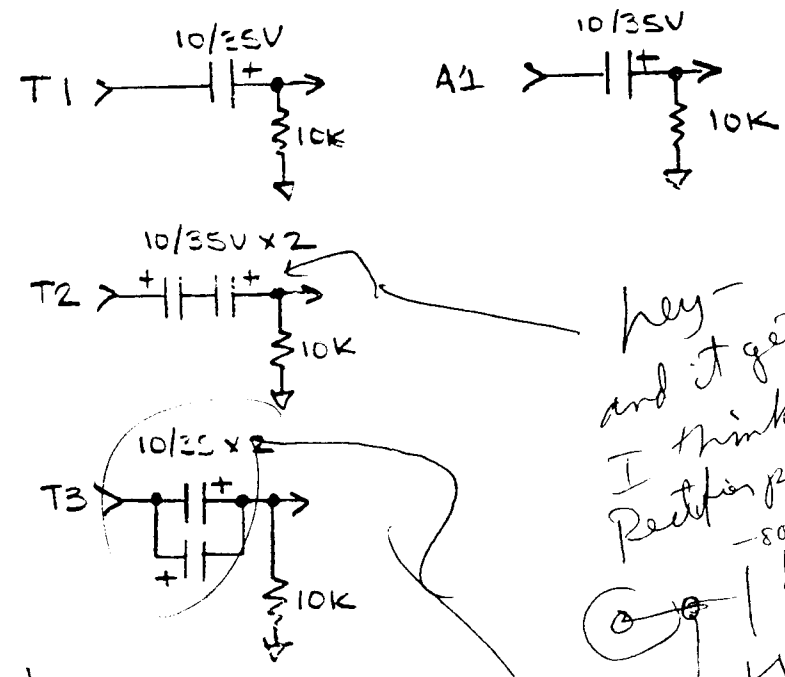 10/35V
T1
+
10K
10/35V
A1
+
10K
10/35V x 2
T2
+ +
10K
10/35 x 2
T3
+
+
10K
hey-
and it ge
I think
Rectifier p